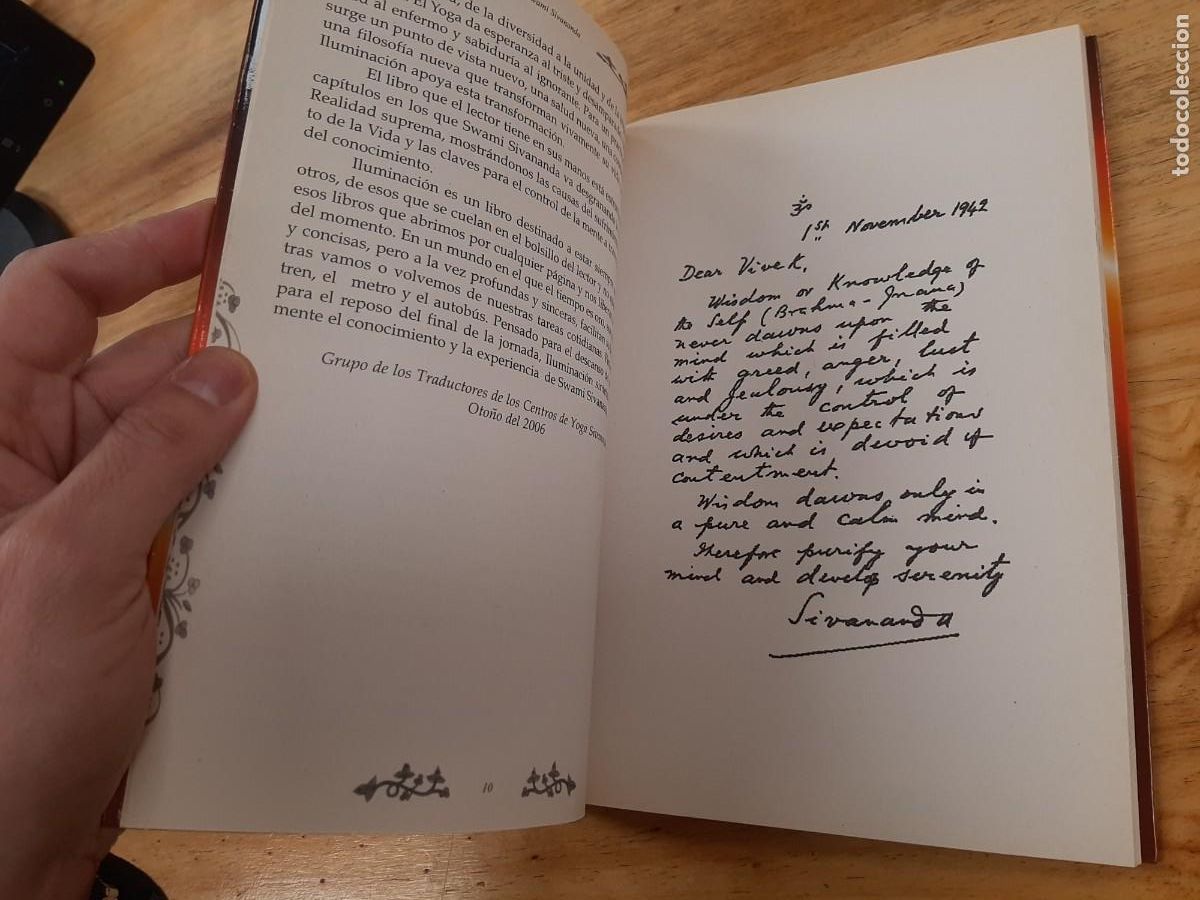 Swami Sivananda
de la diversidad a la unidad y de la
El Yoga da esperanza al triste y desamparado,
al enfermo y sabiduría al ignorante. Para un
surge un punto de vista nuevo, una salud nueva, una
una filosofía nueva que transforman vivamente su vida.
Iluminación apoya esta transformación.
El libro que el lector tiene en sus manos está
capítulos en los que Swami Sivananda va desgranando
Realidad suprema, mostrándonos las causas del
to de la Vida y las claves para el control de la mente
del conocimiento.
Iluminación es un libro destinado a estar siempre
otros, de esos que se cuelan en el bolsillo del lector y
esos libros que abrimos por cualquier página y nos
del momento. En un mundo en el que el tiempo es oro,
y concisas, pero a la vez profundas y sinceras, facilitan
tras vamos o volvemos de nuestras tareas cotidianas.
tren, el metro y el autobús. Pensado para el descanso
para el reposo del final de la jornada, Iluminación
mente el conocimiento y la experiencia de Swami
Grupo de los Traductores de los Centros de Yoga
Otoño del 2006
10
ॐ
1st November 1942
Dear Vivek,
Wisdom or Knowledge of
the Self (Brahma-Jnana)
never dawns upon the
mind which is filled
with greed, anger, lust
and jealousy, which is
under the control of
desires and expectations
and which is devoid of
contentment.
Wisdom dawns only in
a pure and calm mind.
Therefore purify your
mind and develop serenity
Sivananda
todocoleccion